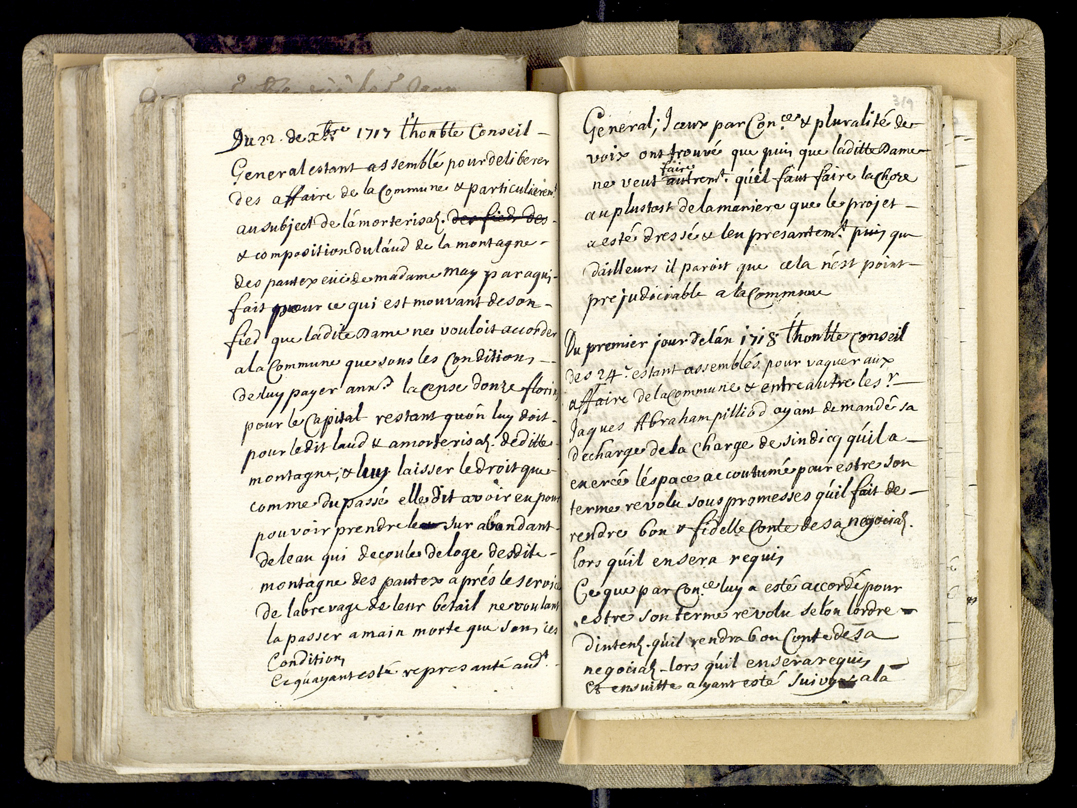 Du 22. de xbre 1717 l'honble Conseil
General estant assemblé pour deliberer
des affaire de la Commune & particulierem.t
au subject de lámorterisaõn. des fied des
& composition du láud de la montagne
des pautex de madame may par aqui-
fait pour ce qui est mouvant de son
fied que ladite Dame ne vouloit accorder
a la Commune que sous les Conditions
de luy payer ann.t la cense donze florins
pour le Capital restant quon luy doit
pour ledit laud & amorterisaõn. de ditte
montagne, & luy laisser le droit que
comme du passé elle dit avoir eu pour
pouvoir prendre le sur abondant
de leau qui decoule de loge desdite
montagne des pautex aprés le service
de labrevage de leur betail ne voulant
la passer a main morte que sous ces
Condition
Ce quayant esté representé aud.t
319
General; Iceux par Con.ce & pluralité de
voix ont trouvé que puis que laditte Dame
faire
ne veut autrem.t qu'el faut faire la Chose
au plustost de la maniere que le projet
a esté dressé & leu presantem.t puis que
dailleurs il paroit que cela n'est point
prejudiciable a la Commune
Du premier jour de lán 1718 l'honble Conseil
des 24.e estant assemblés pour vaquer aux
affaire de la Commune & entre autre le s.r
Jaques Abraham pilliod ayant demandé sa
décharge de la Charge de sindicq qu'il a
exercé lespace accoutumé pour estre son
terme revolu sous promesses qu'il fait de
rendre bon & fidelle Conte de sa negociaõn.
lors qu'il en sera requis
Ce que par Con.ce luy a esté accordé pour
estre son terme revolu selon lordre
d'intenõn. qu'il rendra bon Conte de sa
negociaõn. lors qu'il en sera requis
Et ensuitte ayant esté a la